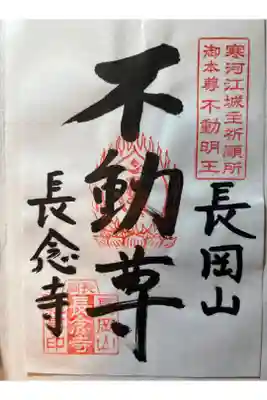 寒河江城主祈願所
御本尊不動明王
長岡山
不動尊
長念寺
長岡山
長念寺